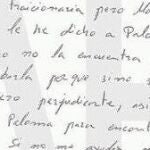 traicionaria pero Mo
le he dicho a Palo
no la encuentra
burla porque si no s
ero perjudicante, asi
Paloma para encont
Si no me ayudas m